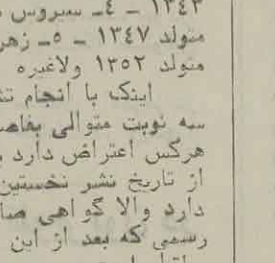 ۱۳۴۳ – ۴ – سیروس
متولد ۱۳۴۷ – ۵ – زهر
متولد ۱۳۵۲ ولاغیره
اینک با انجام تش
سه نوبت متوالی بفاص
هرکس اعتراض دارد
از تاریخ نشر نخستین
دارد والا گواهی صا
رسمی که بعد از این